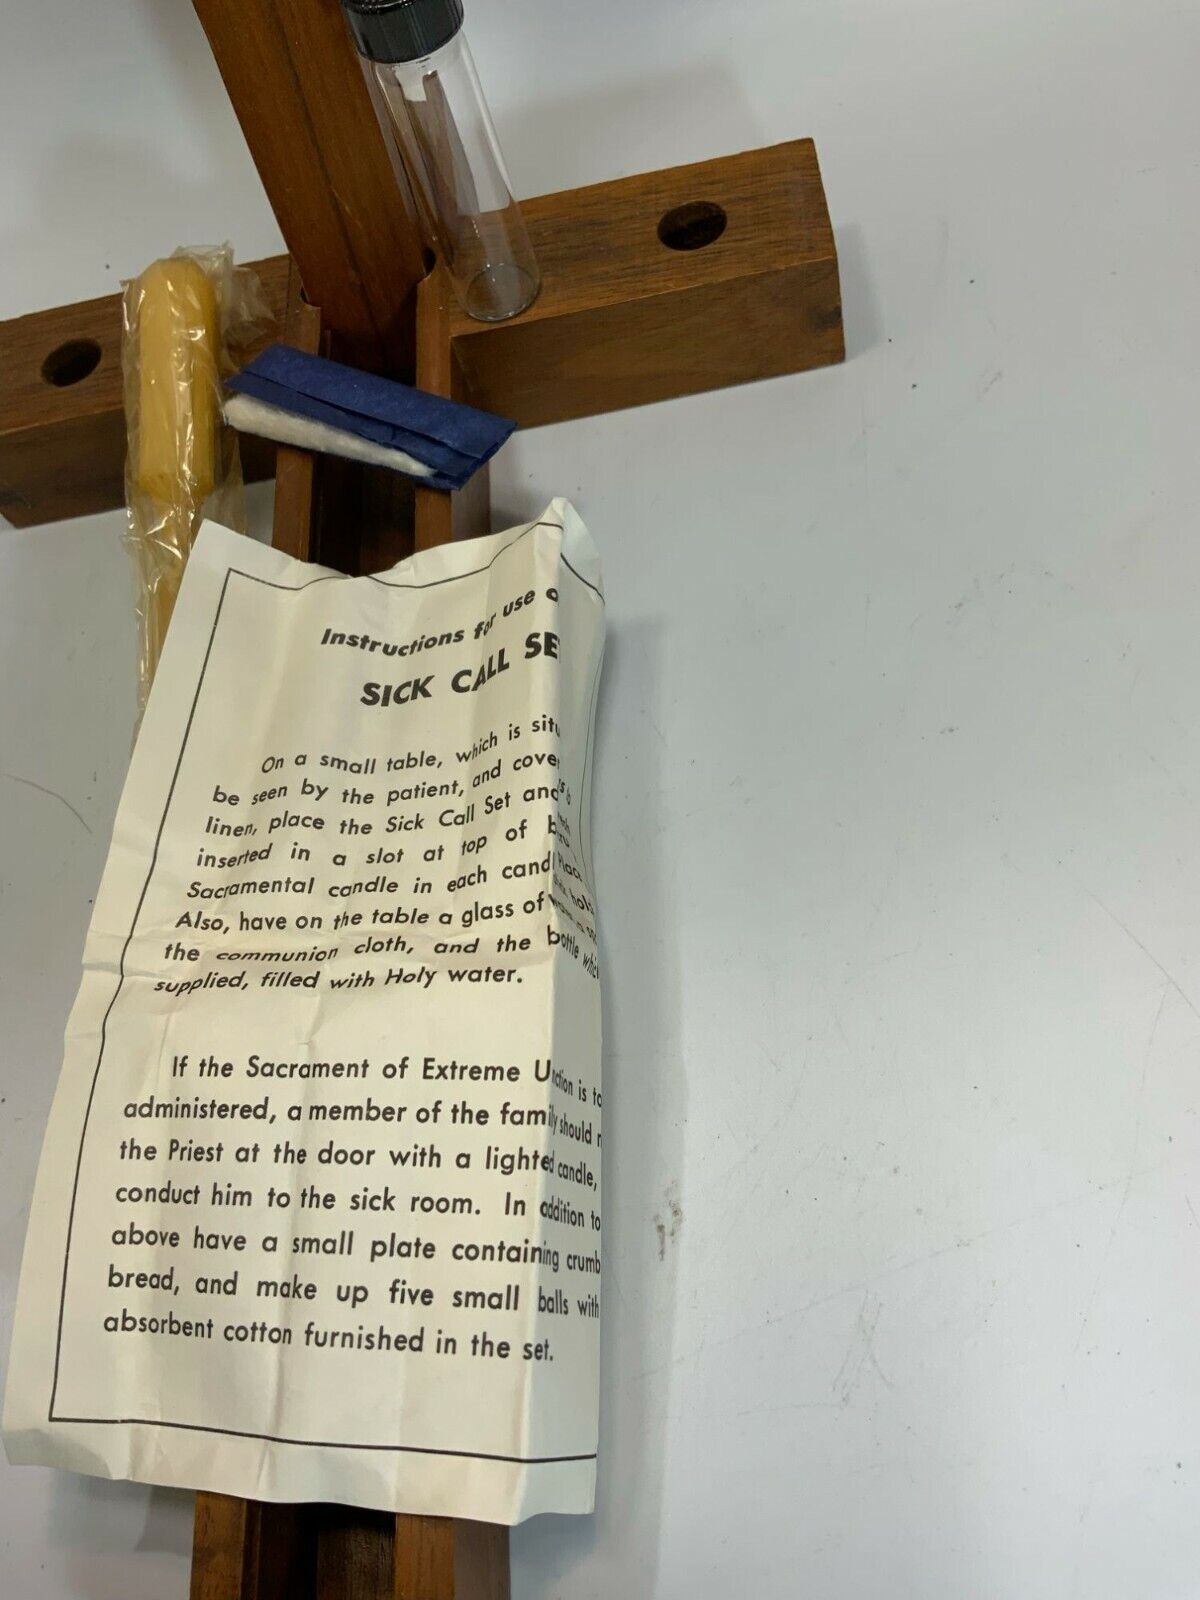 Instructions for use o
SICK CALL SE
On a small table, which is situ
be seen by the patient, and cove
linen, place the Sick Call Set and
inserted in a slot at top of b
Sacramental candle in each cand
Also, have on the table a glass of
the communion cloth, and the bottle whic
supplied, filled with Holy water.
If the Sacrament of Extreme Unction is to
administered, a member of the family should
the Priest at the door with a lighted candle,
conduct him to the sick room. In addition to
above have a small plate containing crumb
bread, and make up five small balls with
absorbent cotton furnished in the set.